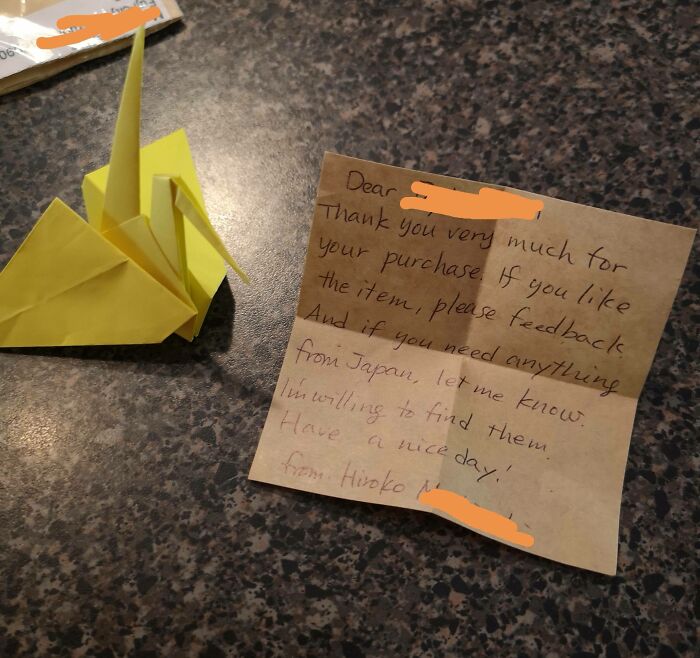 Dear
Thank you very much for
your purchase. If you like
the item, please feedback.
And if you need anything
from Japan, let me know.
I'm willing to find them.
Have a nice day!
from Hiroko